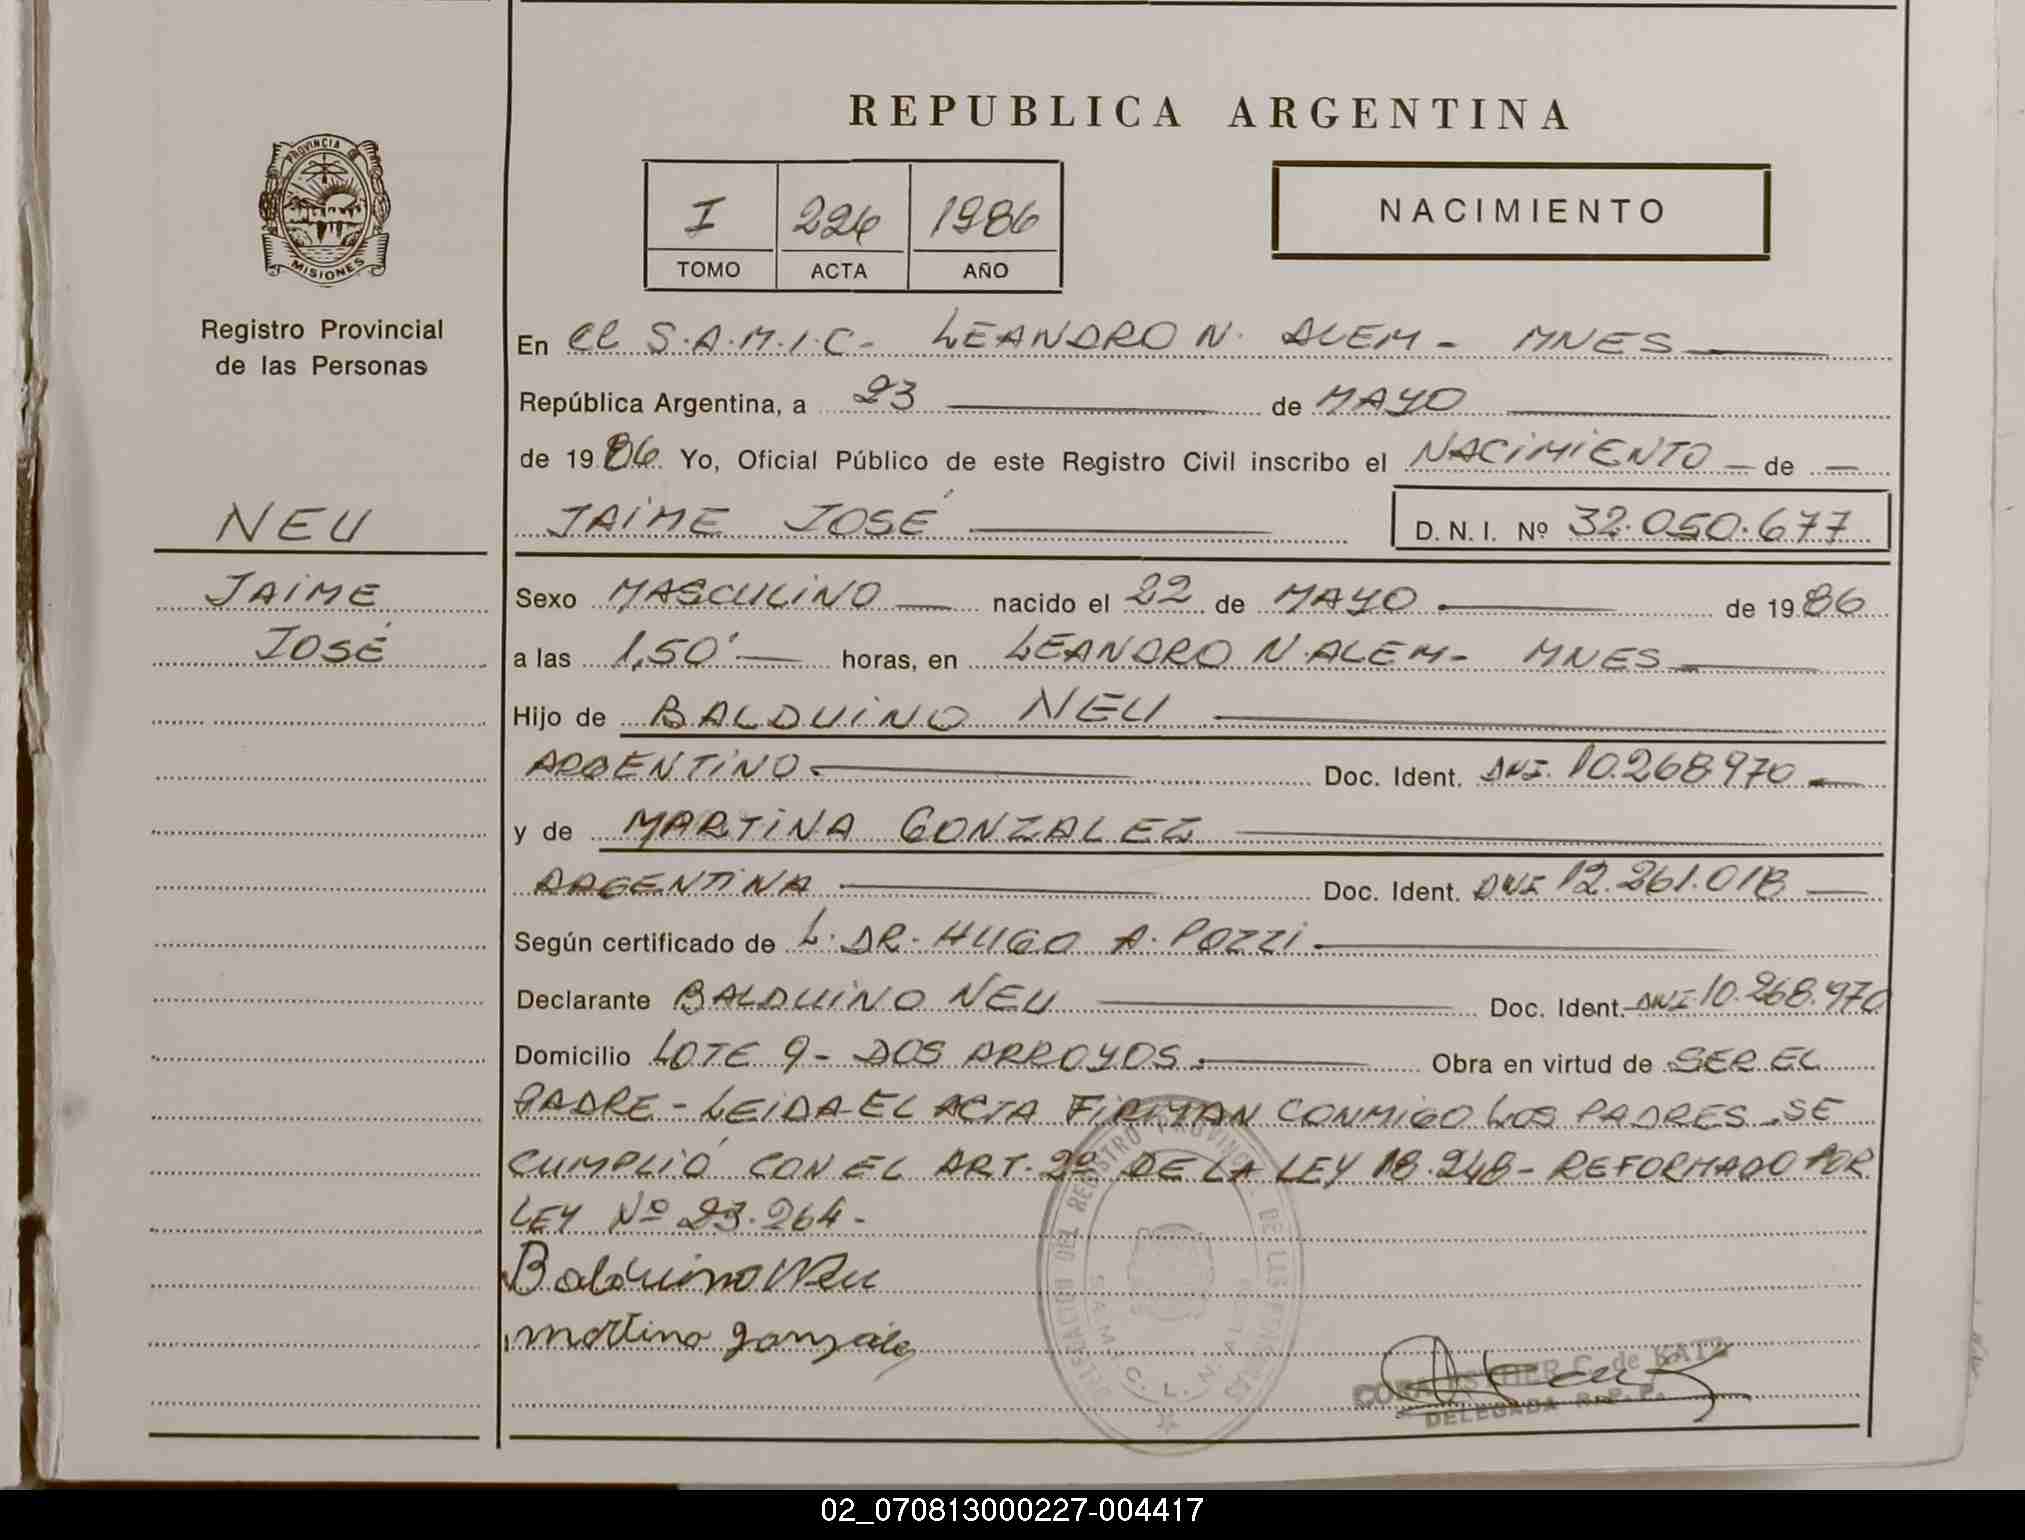 REPUBLICA ARGENTINA
PROVINCIA DE
MISIONES
Registro Provincial
de las Personas
I 226 1986
TOMO ACTA AÑO
NACIMIENTO
En el S.A.M.I.C- LEANDRO N. ALEM - MNES
República Argentina, a 23 de MAYO
de 1986 Yo, Oficial Público de este Registro Civil inscribo el NACIMIENTO - de -
NEU
JAIME JOSÉ D. N. I. Nº 32.050.677
JAIME
JOSÉ
Sexo MASCULINO nacido el 22 de MAYO de 1986
a las 1,50' horas, en LEANDRO N. ALEM- MNES
Hijo de BALDUINO NEU
ARGENTINO Doc. Ident. DNI. 10.268.970
y de MARTINA GONZALEZ
ARGENTINA Doc. Ident. DNI 12.261.018
Según certificado de L. DR. HUGO A. POZZI
Declarante BALDUINO NEU Doc. Ident. DNI 10.268.970
Domicilio LOTE 9 - DOS ARROYOS. Obra en virtud de SER EL
PADRE - LEIDA EL ACTA FIRMAN CONMIGO LOS PADRES. SE
CUMPLIÓ CON EL ART. 2º DE LA LEY 18.248 - REFORMADO POR
LEY Nº 23.264 -
Balduino Neu
Martina gonzalez
DELEGACION DEL REGISTRO PROVINCIAL DE LAS PERSONAS
S.A.M.I.C. L. N. AL
ESTHER C. de KATZ
DELEGADA R.P.P.
02_070813000227-004417